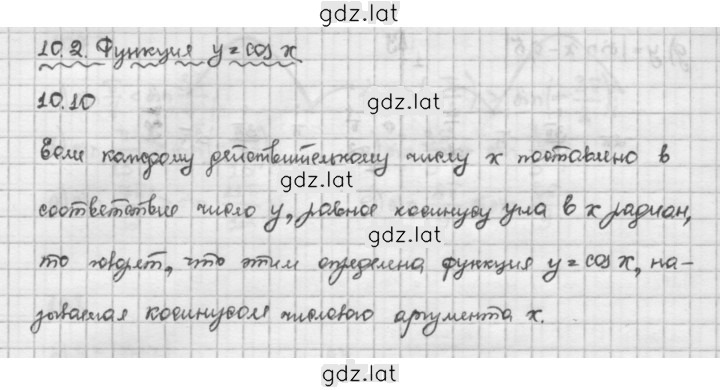 gdz.lat
10.2. Функция y = cos x
10.10
gdz.lat
Если каждому действительному числу x поставлено в
gdz.lat
соответствие число y, равное косинусу угла в x радиан,
gdz.lat
то говорят, что этим определена функция y = cos x, на-
зываемая косинусом числового аргумента x.
gdz.lat